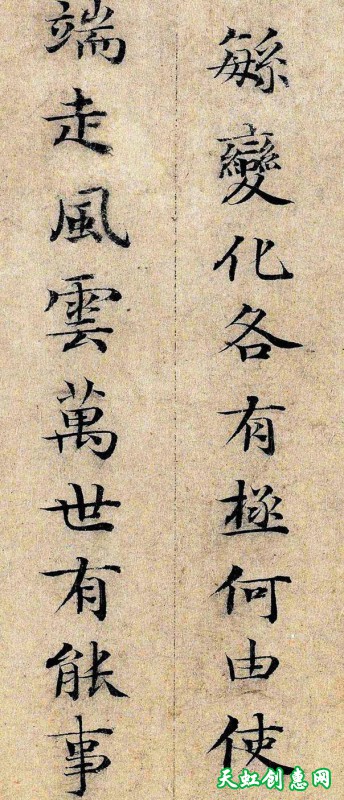 緐變化各有極何由使
端走風雲萬世有能事
天虹创惠网